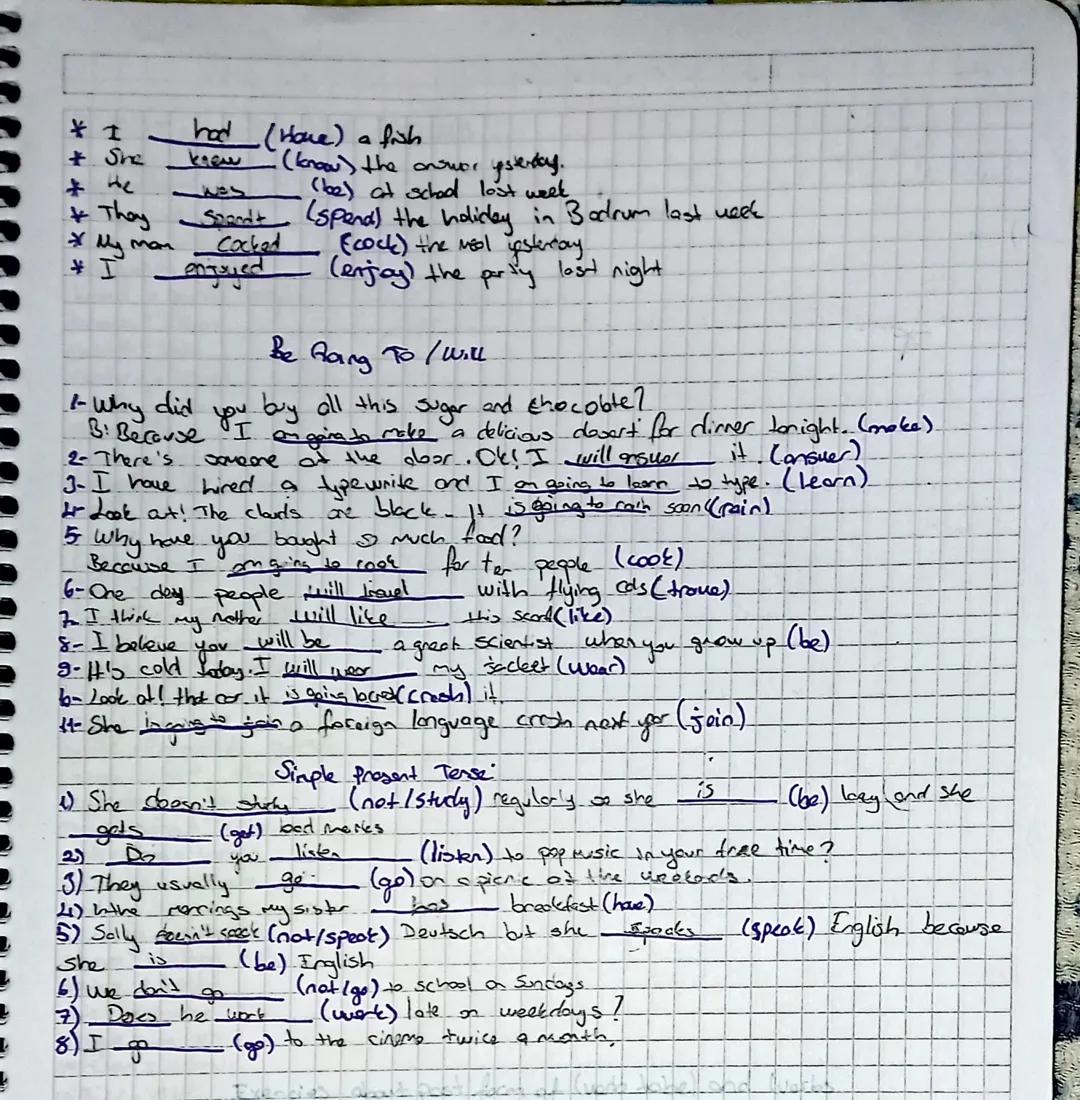 * I had (Have) a fish
* She knew (know) the answer yesterday.
* He was (be) at school last week
* They spendt (spend) the holiday in Bodrum last week
* My mam cocked (cock) the meal yesterday
* I enjoyed (enjoy) the party last night
Be Going To / Will
1- Why did you buy all this sugar and chocolate?
B: Because I am going to make a delicious desert for dinner tonight. (make)
2- There's someone at the door. Ok! I will answer it. (answer)
3- I have hired a typewrite and I am going to learn to type. (learn)
4- Look at! The clouds are black. It is going to rain soon (rain)
5 Why have you bought so much food?
Because I am going to cook for ten people (cook)
6- One day people will travel with flying cars (travel)
7. I think my mother will like this scarf (like)
8- I believe you will be a great scientist when you grow up (be)
9- It's cold today. I will wear my jacket (wear)
10- Look at! that car it is going to crash (crash) it.
11- She is going to join a foreign language next year (join)
Simple Present Tense
1) She doesn't study (not/study) regularly so she is (be) lazy and she
gets (get) bad marks
2) Do you listen (listen) to pop music in your free time?
3) They usually go (go) on a picnic at the weekends.
4) In the mornings my sister has breakfast (have)
5) Sally doesn't speak (not/speak) Deutsch but she speaks (speak) English because
she is (be) English
6) We don't go (not/go) to school on Sundays
7) Does he work (work) late on weekdays?
8) I go (go) to the cinema twice a month.